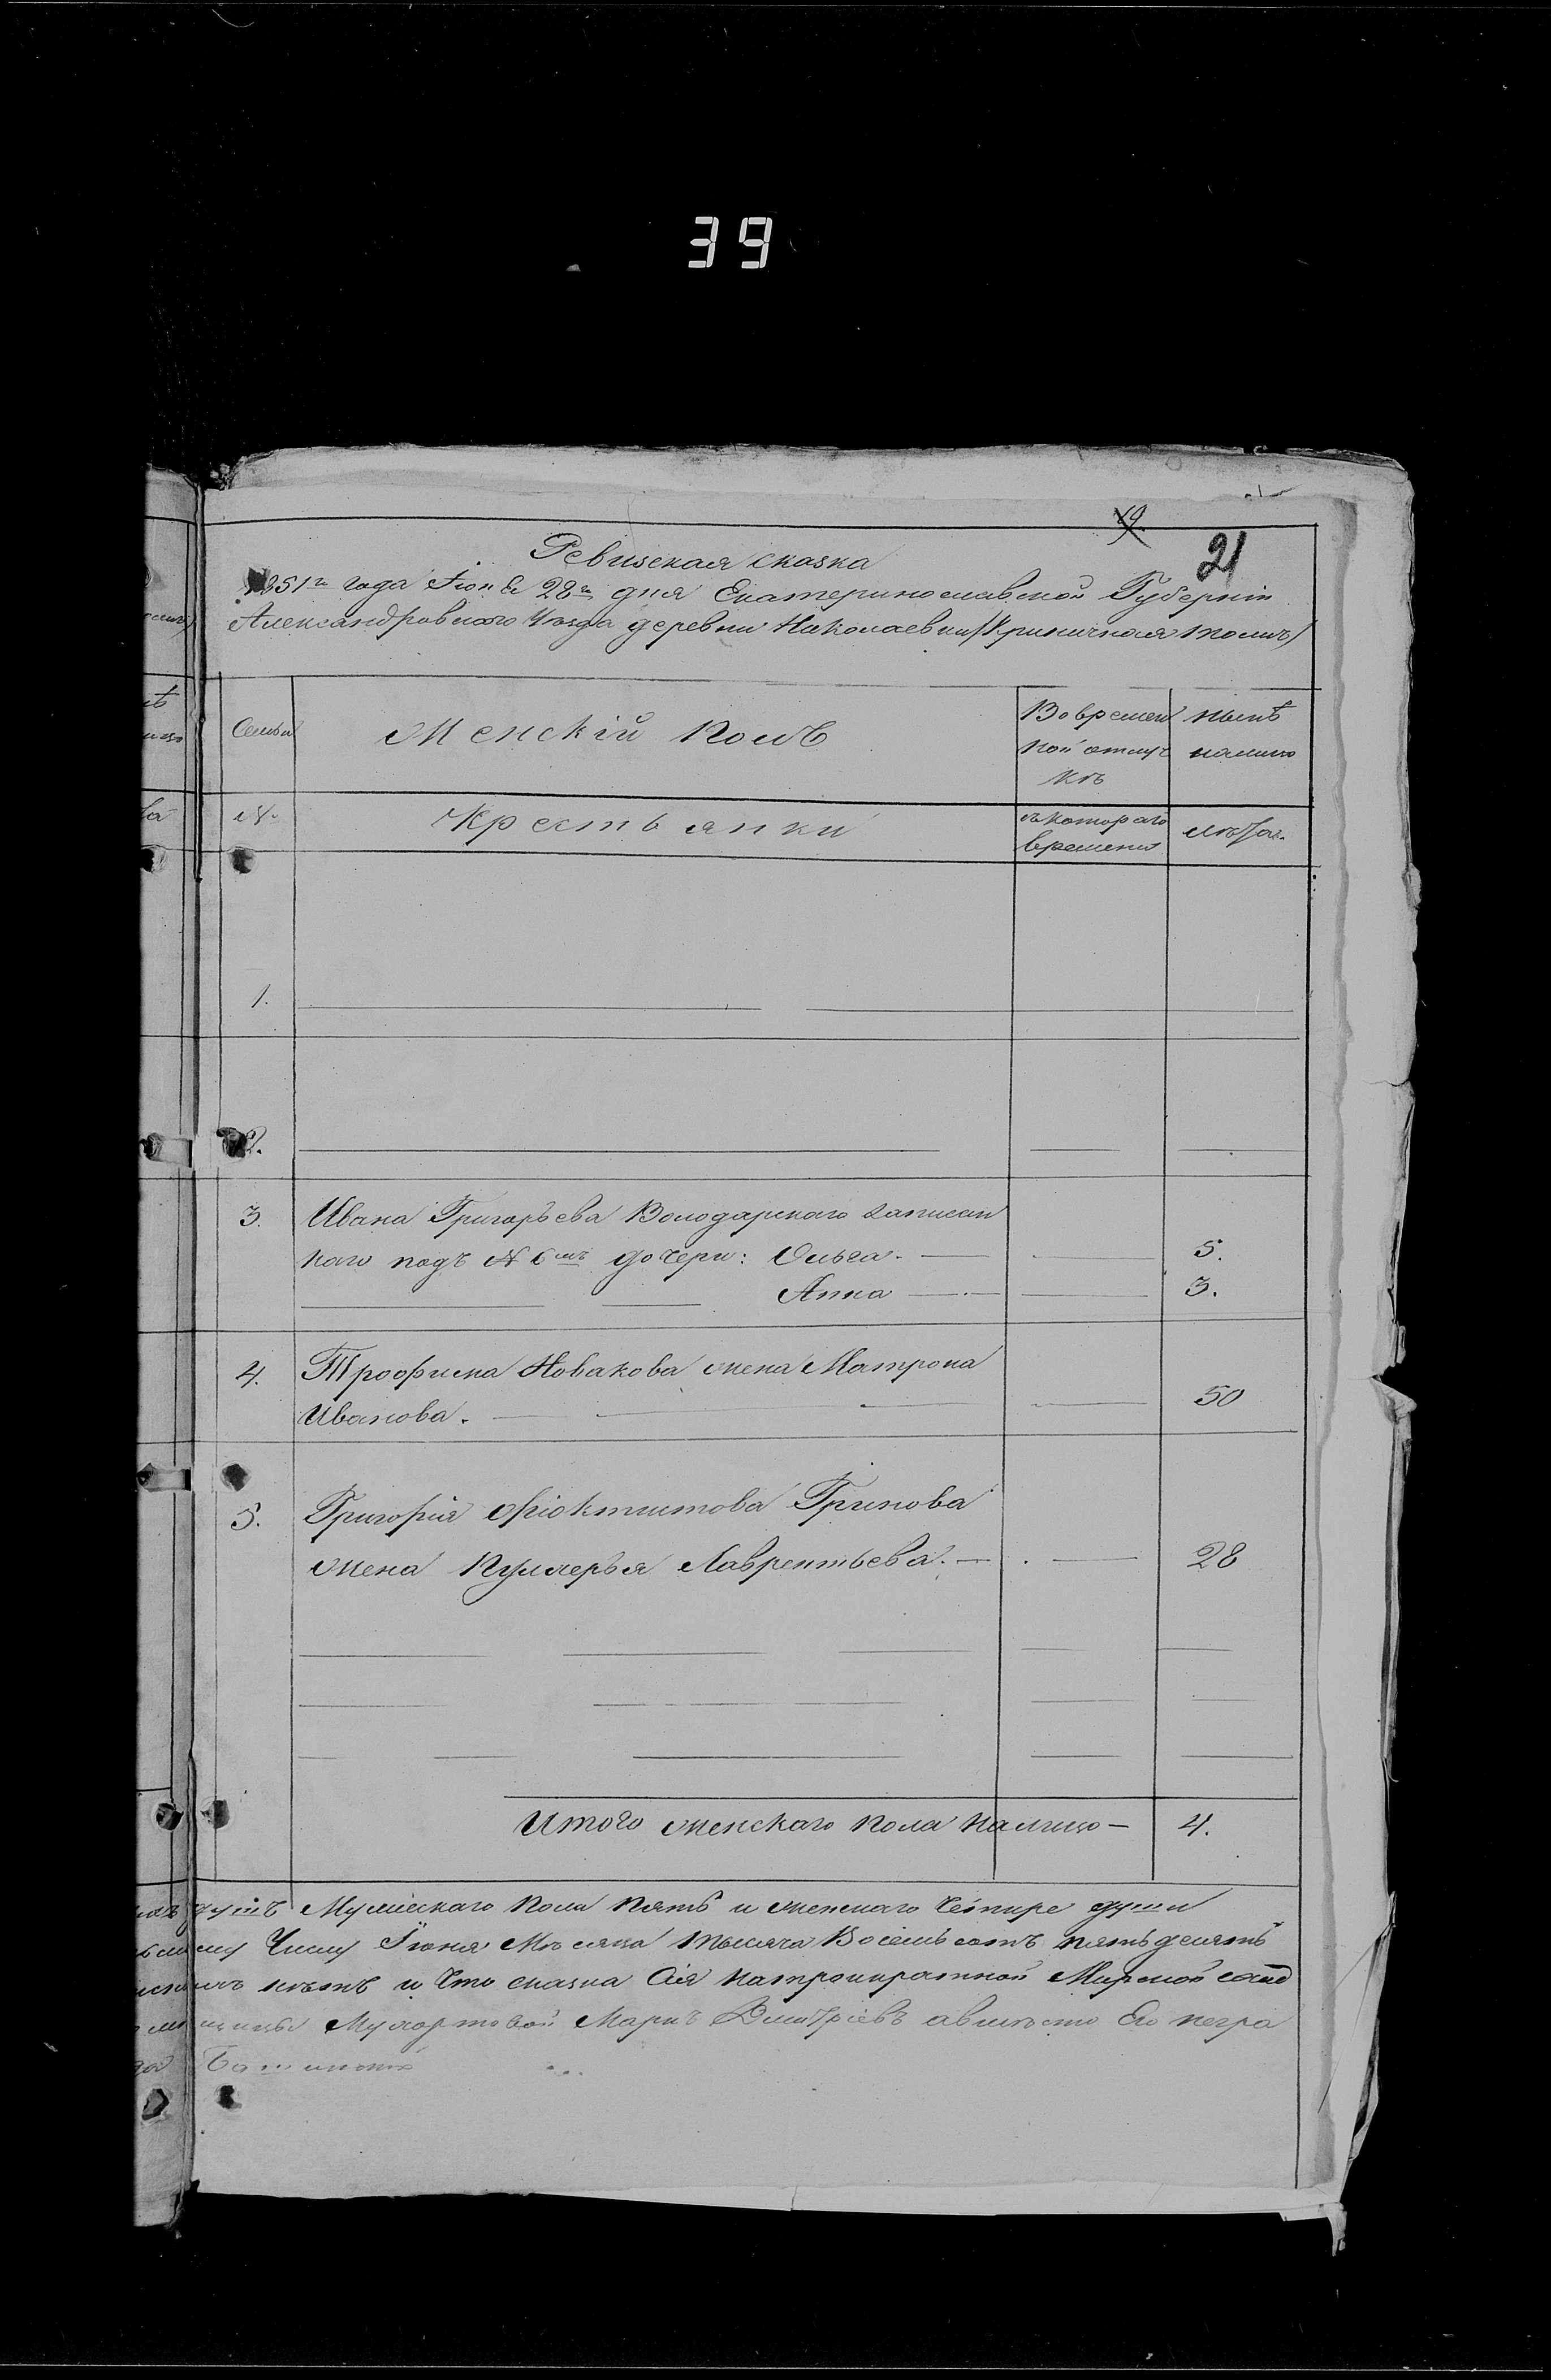 39
19.
21
Ревизская сказка
1851го года Іюня 28го дня Екатеринославской Губерніи
Александровского Уѣзда деревни Николаевки / Криничная тожъ /
Семьи
Женскій полъ
Вовремен
ной отлуч
кѣ
нынѣ
налицо
№.
Крестьянки
съ котораго
времени
лѣта.
1.
2.
3. Ивана Григорьева Володарскаго записан
наго подъ № 6мъ дочери: Ольга. 5.
Анна 3.
4. Трофима Новакова жена Матрона
Иванова. 50
5. Григорія Фіоктистова Гринова
жена Пулхерья Лаврентьева. 28
Итого женскаго пола налицо — 4.
душъ Мужескаго пола пять и женскаго четыре души
му числу Іюня Мѣсяца тысяча Восемь сотъ пятьдесятъ
нѣтъ и что сказка сія
Мухортовой Марье Дмитріевъ авмѣсто Его негра